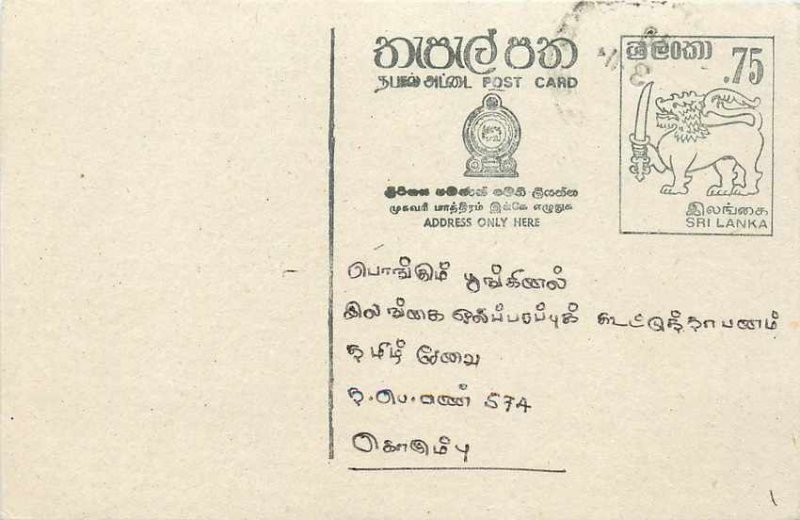 තැපැල් පත
தபால் அட்டை POST CARD
ශ්‍රී ලංකා .75
ලිපිනය පමණක් මෙහි ලියන්න
முகவரி மாத்திரம் இங்கே எழுதுக
ADDRESS ONLY HERE
இலங்கை
SRI LANKA
பொங்கும் பூங்கினல்
இலங்கை ஒலிப்பரப்புக் கூட்டுத்தாபனம்
தமிழ் சேவை
த.பெ.எண் 574
கொழும்பு